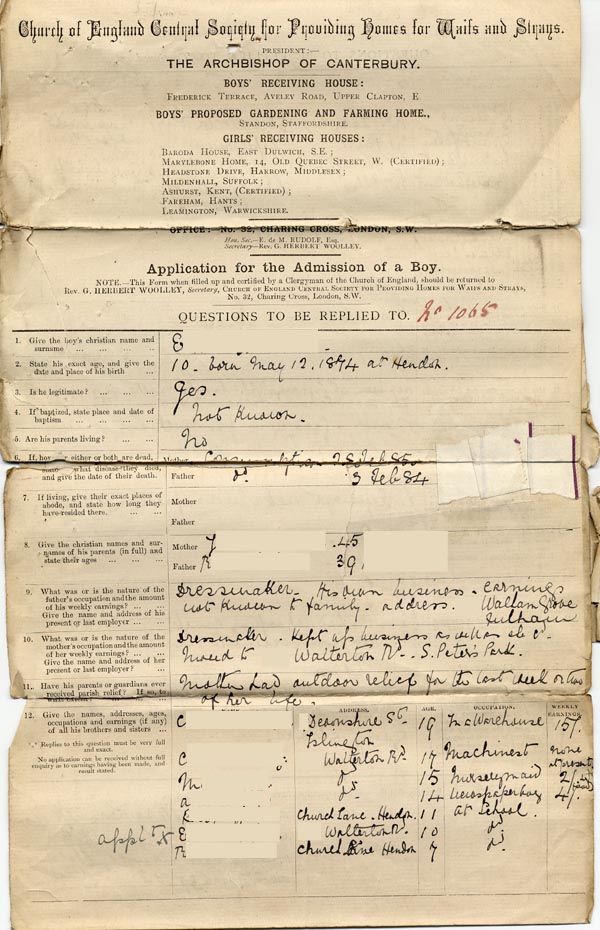 Church of England Central Society for Providing Homes for Waifs and Strays.
PRESIDENT:—
THE ARCHBISHOP OF CANTERBURY.
BOYS' RECEIVING HOUSE:
FREDERICK TERRACE, AVELEY ROAD, UPPER CLAPTON, E.
BOYS' PROPOSED GARDENING AND FARMING HOME.,
STANDON, STAFFORDSHIRE.
GIRLS' RECEIVING HOUSES:
BARODA HOUSE, EAST DULWICH, S.E.;
MARYLEBONE HOME, 14, OLD QUEBEC STREET, W. (CERTIFIED);
HEADSTONE DRIVE, HARROW, MIDDLESEX;
MILDENHALL, SUFFOLK;
ASHURST, KENT, (CERTIFIED);
FAREHAM, HANTS;
LEAMINGTON, WARWICKSHIRE.
OFFICE: No. 32, CHARING CROSS, LONDON, S.W.
Hon. Sec.—E. de M. RUDOLF, Esq.
Secretary—Rev. G. HERBERT WOOLLEY.
Application for the Admission of a Boy.
NOTE.—This Form when filled up and certified by a Clergyman of the Church of England, should be returned to
Rev. G. HERBERT WOOLLEY, Secretary, CHURCH OF ENGLAND CENTRAL SOCIETY FOR PROVIDING HOMES FOR WAIFS AND STRAYS,
No. 32, Charing Cross, London, S.W.
QUESTIONS TO BE REPLIED TO. No 1065
1. Give the boy's christian name and surname ... ... E
2. State his exact age, and give the date and place of his birth ... 10. born May 12. 1874 at Hendon.
3. Is he legitimate? ... ... ... Yes.
4. If baptized, state place and date of baptism ... ... ... Not Known.
5. Are his parents living? ... ... No
6. If, how or either or both are dead, Mother Consumption 28 Feb 85
state what disease they died, and give the date of their death. Father do 3 Feb 84
7. If living, give their exact places of abode, and state how long they have resided there. ... ... Mother
Father
8. Give the christian names and surnames of his parents (in full) and state their ages ... ... Mother J 45
Father R 39
9. What was or is the nature of the father's occupation and the amount of his weekly earnings? ... ... Give the name and address of his present or last employer ... Dressmaker. His own business. earnings
not known to family. address. Walham Grove
Fulham
10. What was or is the nature of the mother's occupation and the amount of her weekly earnings? ... Give the name and address of her present or last employer? Dressmaker. Kept up business as well as she cd.
Moved to Walterton Rd. S. Peters Park.
11. Have his parents or guardians ever received parish relief? If so, to what extent? Mother had outdoor relief for the last week or two
of her life.
12. Give the names, addresses, ages, occupations and earnings (if any) of all his brothers and sisters ...
*** Replies to this question must be very full and exact.
No application can be received without full enquiry as to earnings having been made, and result stated.
ADDRESS. AGE. OCCUPATION. WEEKLY EARNINGS.
C Devonshire St. Islington 19 In a Warehouse 15/-
C Walterton Rd. 17 Machinest none at present
M do 15 Nurserymaid 2/
a do 14 Newspaperboy 4/-
Church Lane. Hendon 11 At School.
appl E Walterton Rd. 10 do
R Church Lane Hendon 7 do